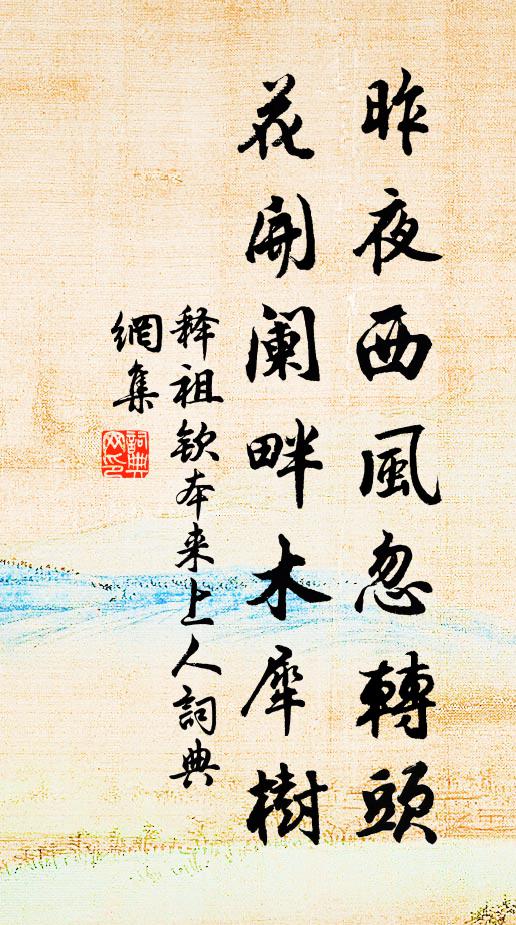 昨夜西風忽轉頭
花開闌畔木犀樹
释祖钦本来上人詞典
網集
詞典
网印